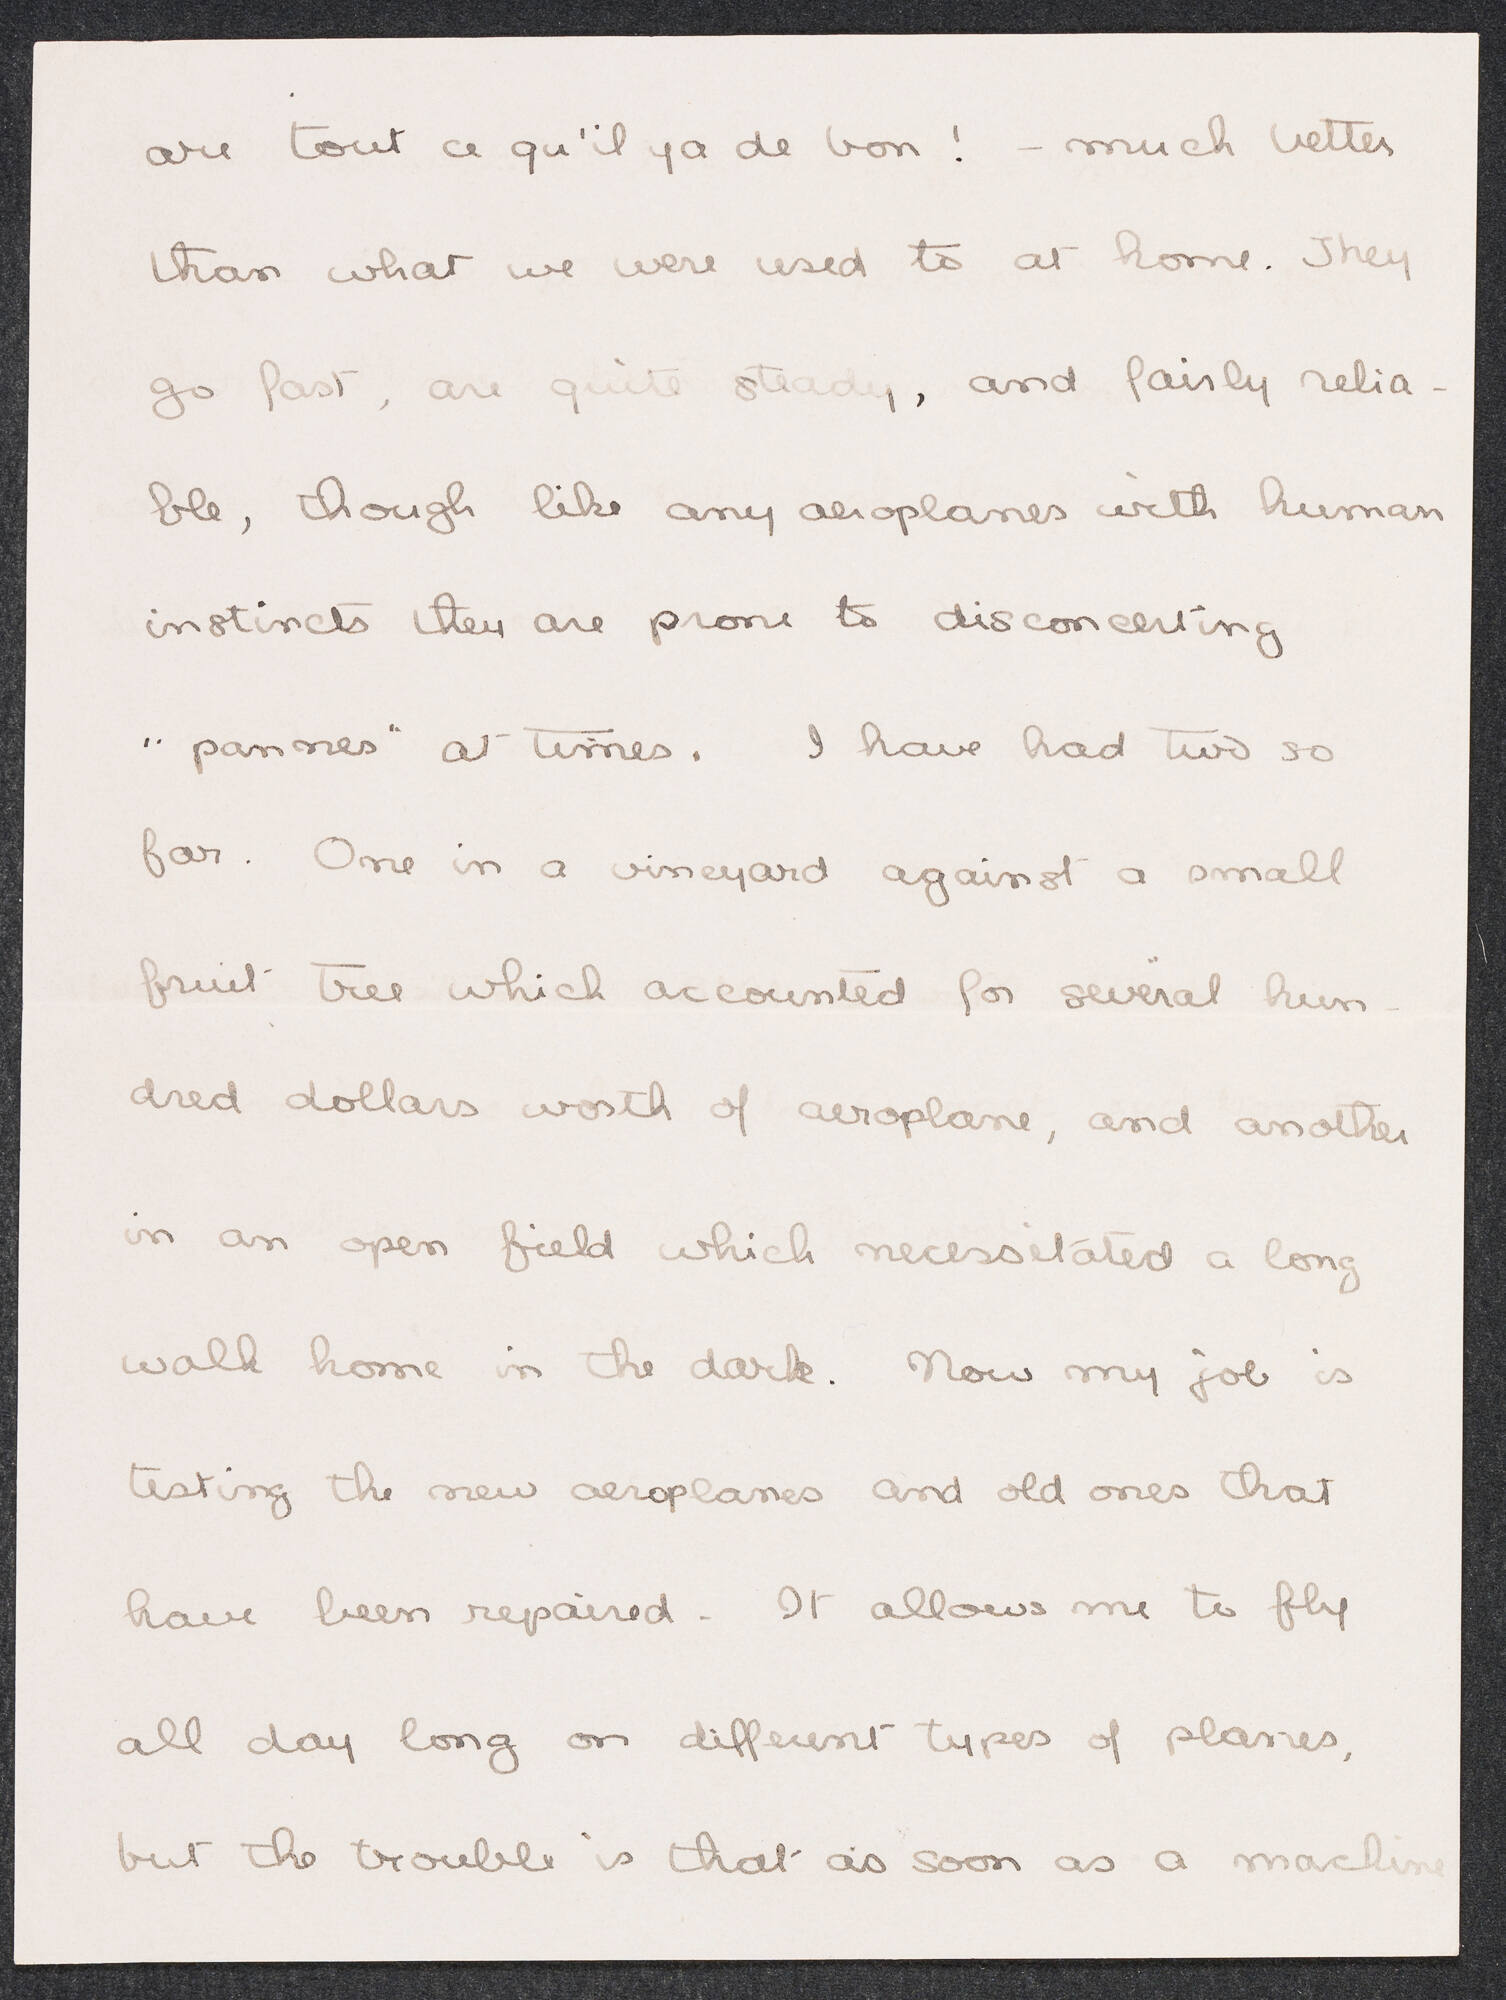 are tout ce qu'il y a de bon! - much better
than what we were used to at home. They
go fast, are quite steady, and fairly relia-
ble, though like any aeroplanes with human
instincts they are prone to disconcerting
"pannes" at times. I have had two so
far. One in a vineyard against a small
fruit tree which accounted for several hun-
dred dollars worth of aeroplane, and another
in an open field which necessitated a long
walk home in the dark. Now my job is
testing the new aeroplanes and old ones that
have been repaired. It allows me to fly
all day long on different types of planes,
but the trouble is that as soon as a machine